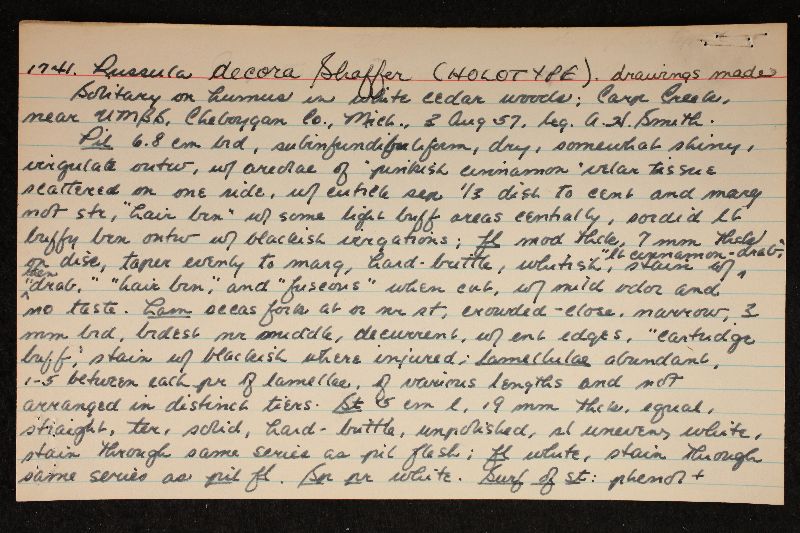 1741. Russula decora Shaffer (HOLOTYPE). drawings made
Solitary on humus in white cedar woods; Carp Creek,
near UMBS, Cheboygan Co., Mich., 3 Aug 57, leg. A. H. Smith.
Pil 6.8 cm brd, subinfundibuliform, dry, somewhat shiny,
virgulate outw, w/ areolae of "pinkish cinnamon" velar tissue
scattered on one side, w/ cuticle sep 1/3 dist to cent and marg
not str, "hair brn" w/ some light buff areas centrally, sordid lt
buffy brn outw w/ blackish virgations; fl mod thick, 7 mm thick
on disc, taper evenly to marg, hard-brittle, whitish, stain w/ "lt cinnamon-drab,"
then "drab," "hair brn," and "fuscous" when cut, w/ mild odor and
no taste. Lam occas fork at or nr st, crowded-close, narrow, 3
mm brd, brdest nr middle, decurrent, w/ ent edges, "cartridge
buff", stain w/ blackish where injured; lamellulae abundant,
1-5 between each pr of lamellae, of various lengths and not
arranged in distinct tiers. St 5 cm l, 19 mm thick, equal,
straight, ter, solid, hard-brittle, unpolished, sl uneven, white,
stain through same series as pil flesh; fl white, stain through
same series as pil fl. Sp pr white. Surf of st: phenol +